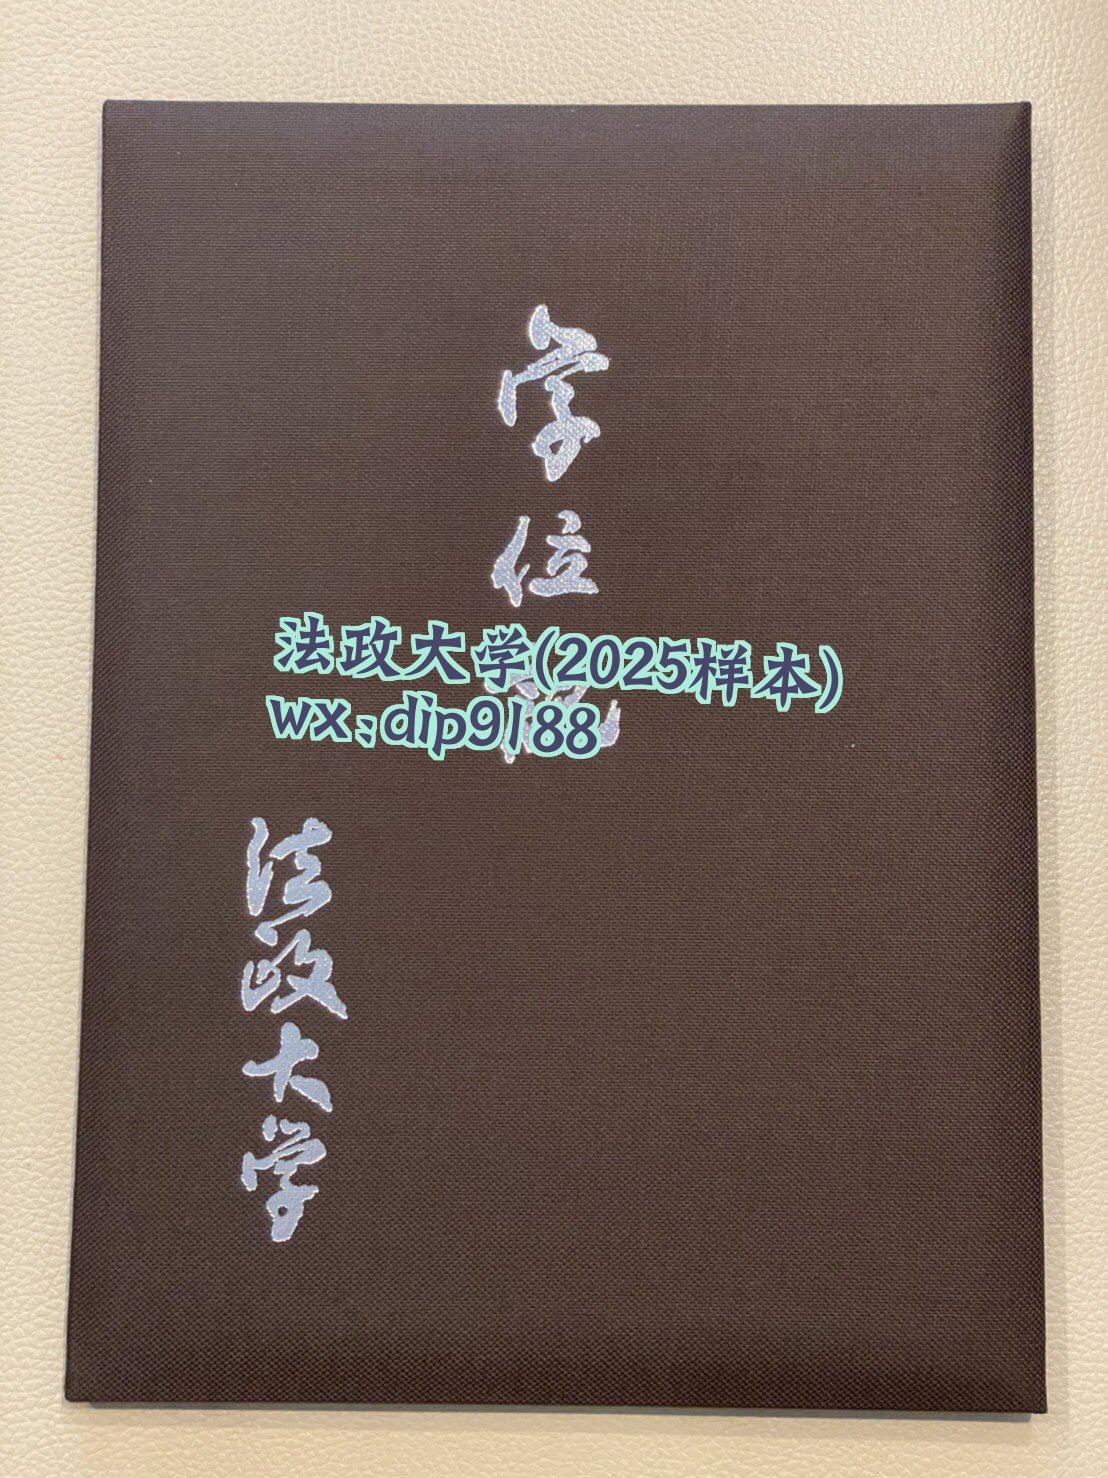 学位記
法政大学(2025样本)
wx:dip9188
法政大学